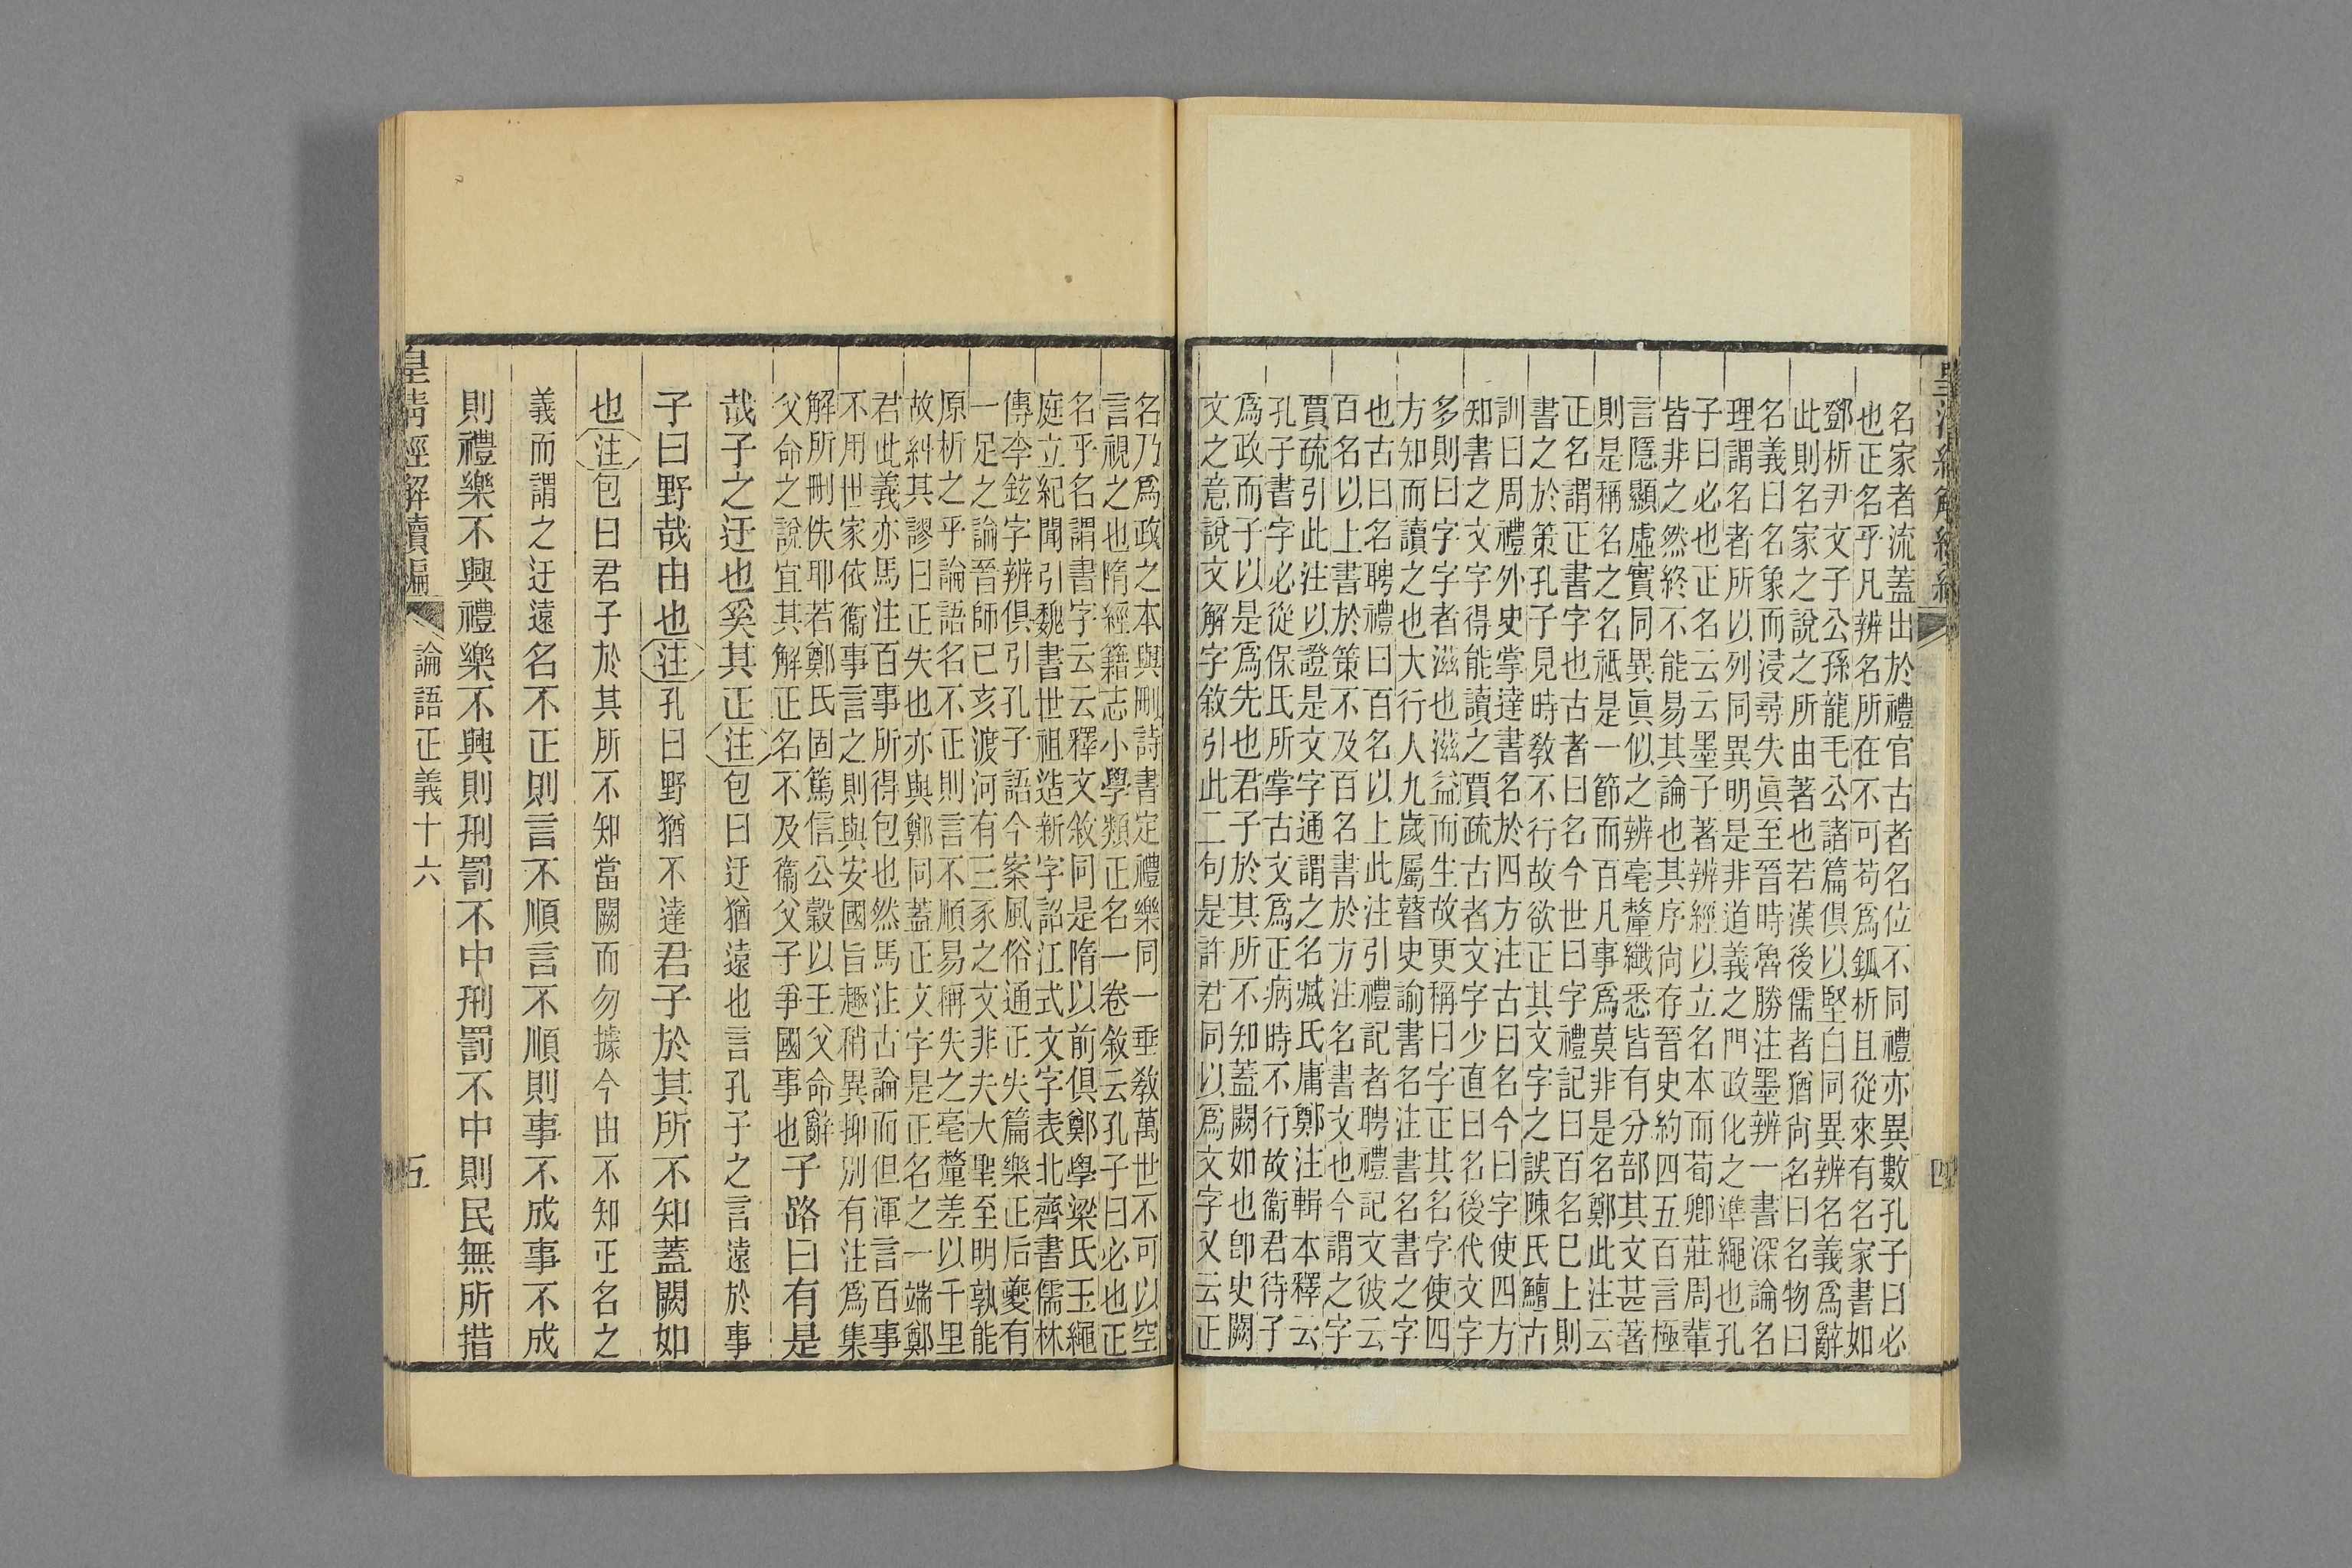 皇清經解續編
名家者流蓋出於禮官古者名位不同禮亦異數孔子曰必
也正名乎凡辨名所在不可苟爲鈲析且從來有名家書如
鄧析尹文子公孫龍毛公諸篇俱以堅白同異辨名義爲辭
此則名家之說之所由著也若漢後儒者猶尚名曰名物曰
名義曰名象而浸尋失眞至晉時魯勝注墨辨一書深論名
理謂名者所以列同異明是非道義之門政化之準繩也孔
子曰必也正名云云墨子著辨經以立名本而荀卿莊周輩
皆非之然終不能易其論也其序尚存晉史約四五百言極
言隱顯虛實同異眞似之辨毫釐纖悉皆有分部其文甚著
則是稱名之名祇是一節而百凡事爲莫非是名鄭此注云
正名謂正書字也古者曰名今世曰字禮記曰百名已上則
書之於策孔子見時敎不行故欲正其文字之誤陳氏鱣古
訓曰周禮外史掌達書名於四方注古曰名今曰字使四方
知書之文字得能讀之賈疏古者文字少直曰名後代文字
多則曰字字者滋也滋益而生故更稱曰字正其名字使四
方知而讀之也大行人九歲屬瞽史諭書名注書名書之字
也古曰名聘禮曰百名以上此注引禮記者聘禮記文彼云
百名以上書於策不及百名書於方注名書文也今謂之字
賈疏引此注以證是文字通謂之名臧氏庸鄭注輯本釋云
孔子書字必從保氏所掌古文爲正病時不行故衞君待子
爲政而子以是爲先也君子於其所不知蓋闕如也卽史闕
文之意說文解字敘引此二句是許君同以爲文字又云正
名乃爲政之本與刪詩書定禮樂同一垂敎萬世不可以空
言視之也隋經籍志小學類正名一卷敘云孔子曰必也正
名乎名謂書字云云釋文敘同是隋以前俱鄭學梁氏玉繩
庭立紀聞引魏書世祖造新字詔江式文字表北齊書儒林
傳李鉉字辨俱引孔子語今案風俗通正失篇樂正后夔有
一足之論晉師己亥渡河有三豕之文非夫大聖至明孰能
原析之乎論語名不正則言不順易稱失之毫釐差以千里
故糾其謬曰正失也亦與鄭同蓋正文字是正名之一端鄭
君此義亦馬注百事所得包也然馬注古論而但渾言百事
不用世家依衞事言之則與安國旨趣稍異抑別有注爲集
解所刪佚耶若鄭氏固篤信公穀以王父命辭
父命之說宜其解正名不及衞父子爭國事也
子路曰有是
哉子之迂也奚其正注包曰迂猶遠也言孔子之言遠於事
子曰野哉由也注孔曰野猶不達君子於其所不知蓋闕如
也注包曰君子於其所不知當闕而勿據今由不知正名之
義而謂之迂遠名不正則言不順言不順則事不成事不成
則禮樂不興禮樂不興則刑罰不中刑罰不中則民無所措
皇清經解續編 論語正義十六 五